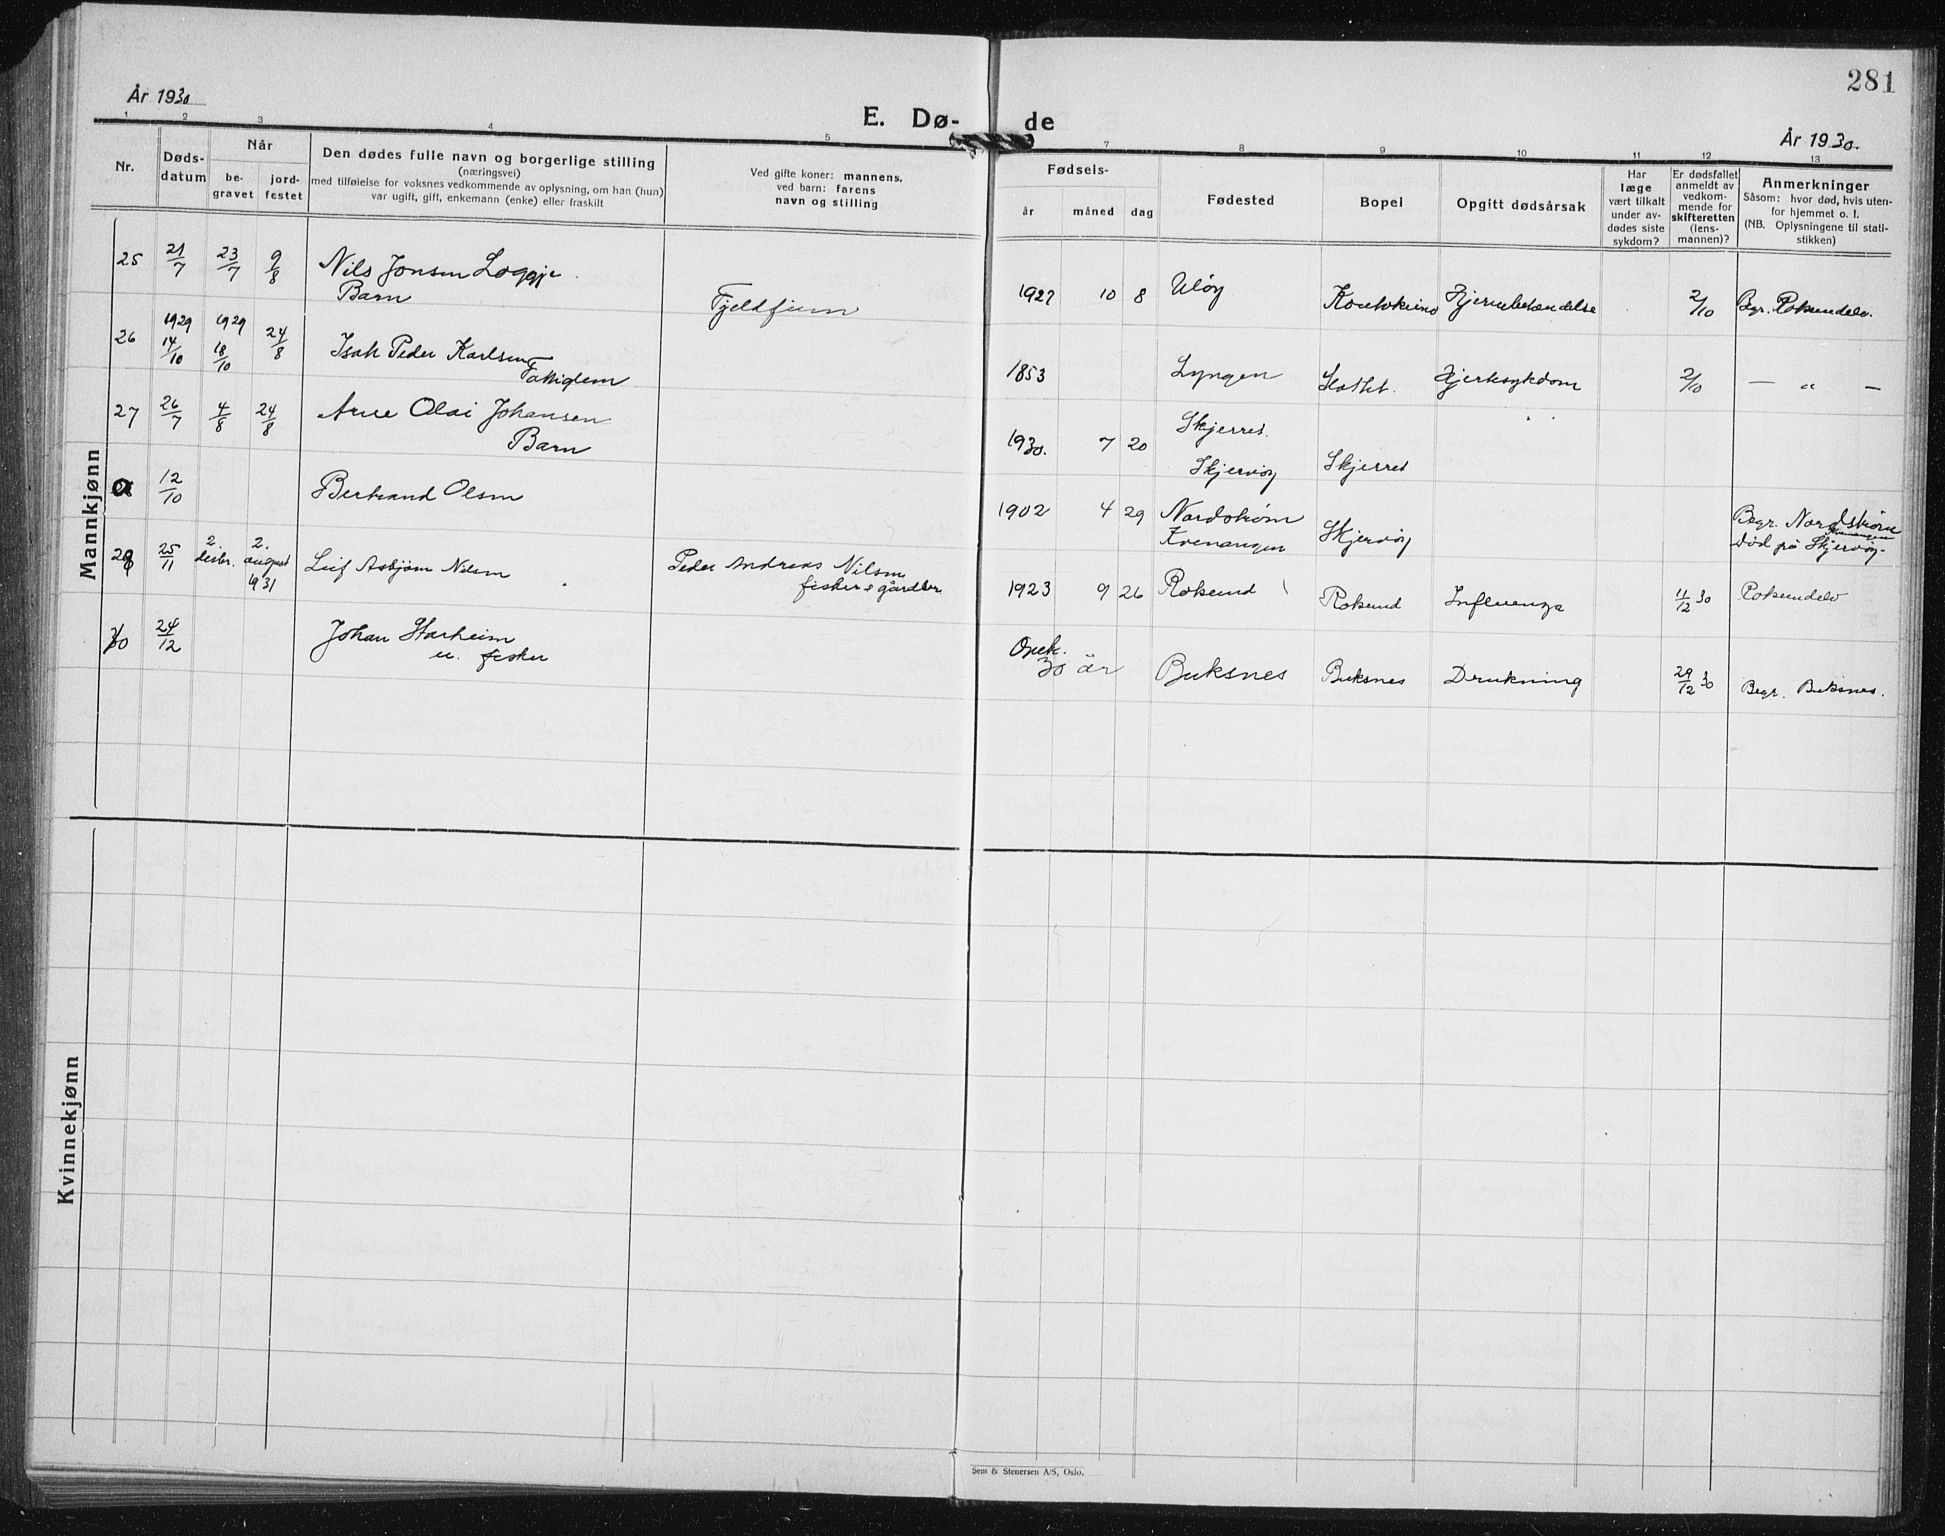 281
År 1930
E. Dø- de
År 1930.
1 2 3 4 5 7 8 9 10 11 12 13
Nr.
Døds-
datum
Når
be-
gravet
jord-
festet
Den dødes fulle navn og borgerlige stilling
(næringsvei)
med tilføielse for voksnes vedkommende av oplysning, om han (hun)
var ugift, gift, enkemann (enke) eller fraskilt
Ved gifte koner: mannens,
ved barn: farens
navn og stilling
Fødsels-
år måned dag
Fødested
Bopel
Opgitt dødsårsak
Har
læge
vært tilkalt
under av-
dødes siste
sykdom?
Er dødsfallet
anmeldt av
vedkom-
mende for
skifteretten
(lens-
mannen)?
Anmerkninger
Såsom: hvor død, hvis uten-
for hjemmet o. l.
(NB. Oplysningene til stati-
stikken)
Mannkjønn
25 21/7 23/7 9/8 Nils Jonsen Loggje
Barn
Fjeldfinn 1927 10 8 Uløy Koutokeino Hjernebetændelse 2/10 Bgr. Rotsundelv.
26 1929 14/10 1929 18/10 24/8 Isak Peder Karlsen
Fattiglem
1853 Lyngen Hjertesykdom 2/10 — " —
27 26/7 4/8 24/8 Arne Olai Johansen
Barn
1930. 7 20 Skjerret.
Skjervøy Skjerret
a 12/10 Bertrand Olsen
1902 4 29 Nordstrøm
Kvenangen Skjervøy
Begr. Nordstrøm
Kvenangen
død på Skjervøy.
29 25/11 2. desbr. 2. august 1931 Leif Asbjørn Nilsen Peder Andreas Nilsen
fisker & gårdbr.
1923 9 26 Rotsund Rotsund Influenza 11/12 30 Rotsundelv
30 24/12 Johan Starheim
u. fisker
Omtr.
30 år Buksnes Buksnes Drukning 29/12 30 Begr. Buksnes.
Kvinnekjønn
Sem & Stenersen A/S, Oslo.